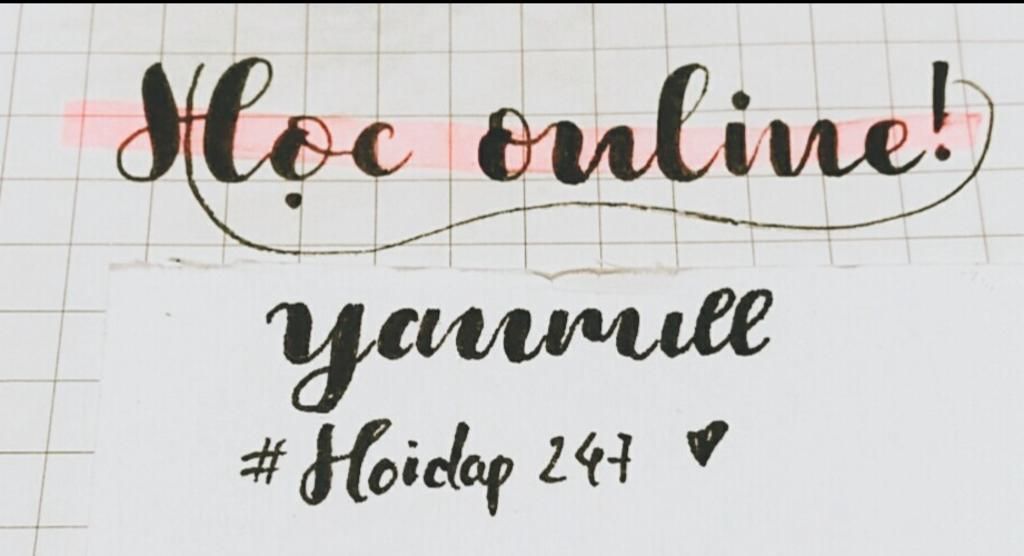 Học online!
#Hoidap 247